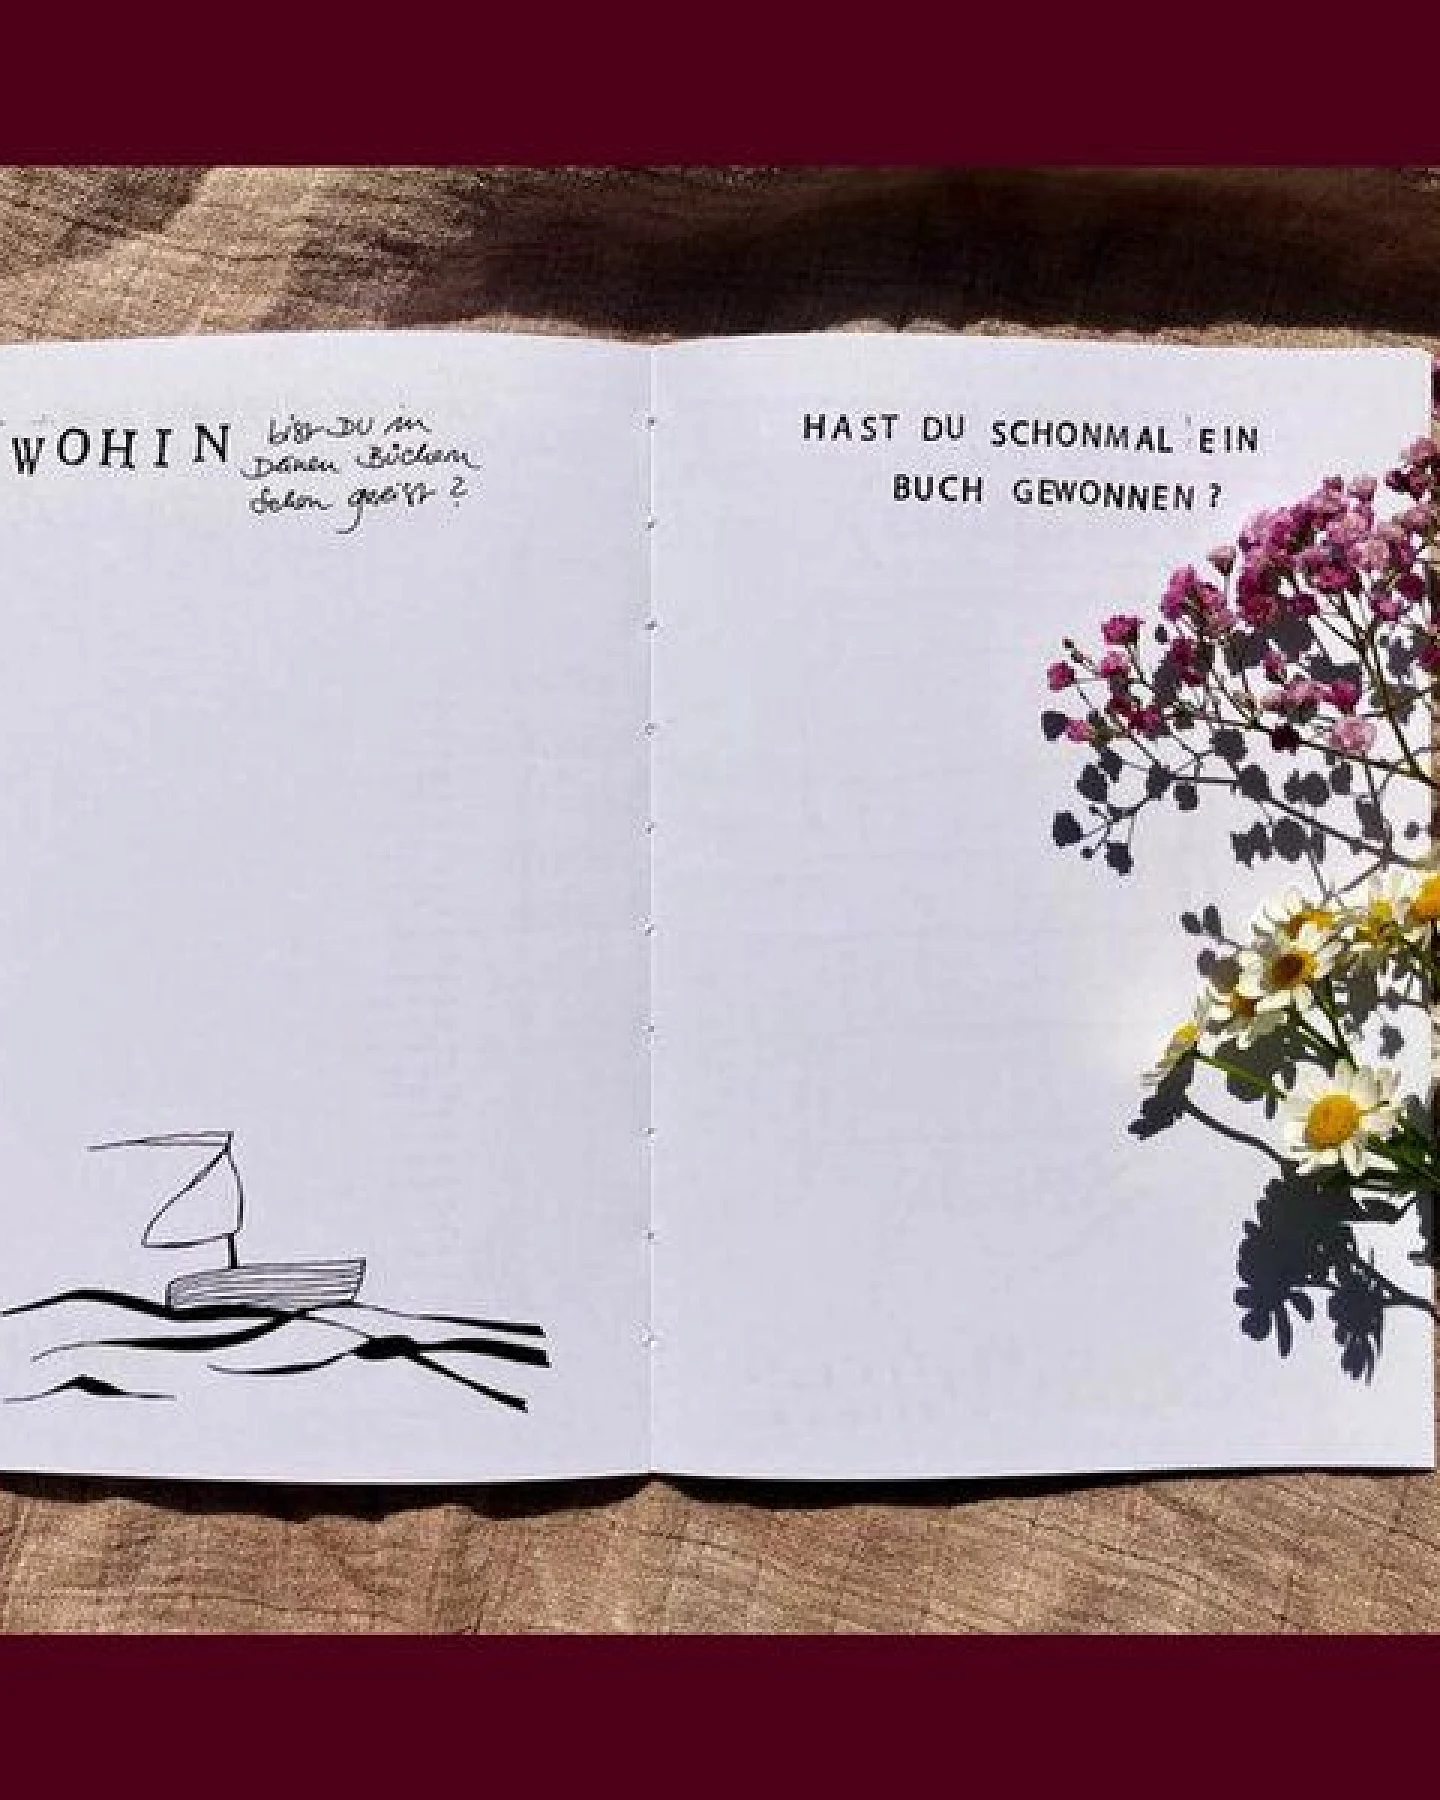 WOHIN bist DU in
Deinen Büchern
schon gereist ?
HAST DU SCHONMAL EIN
BUCH GEWONNEN ?